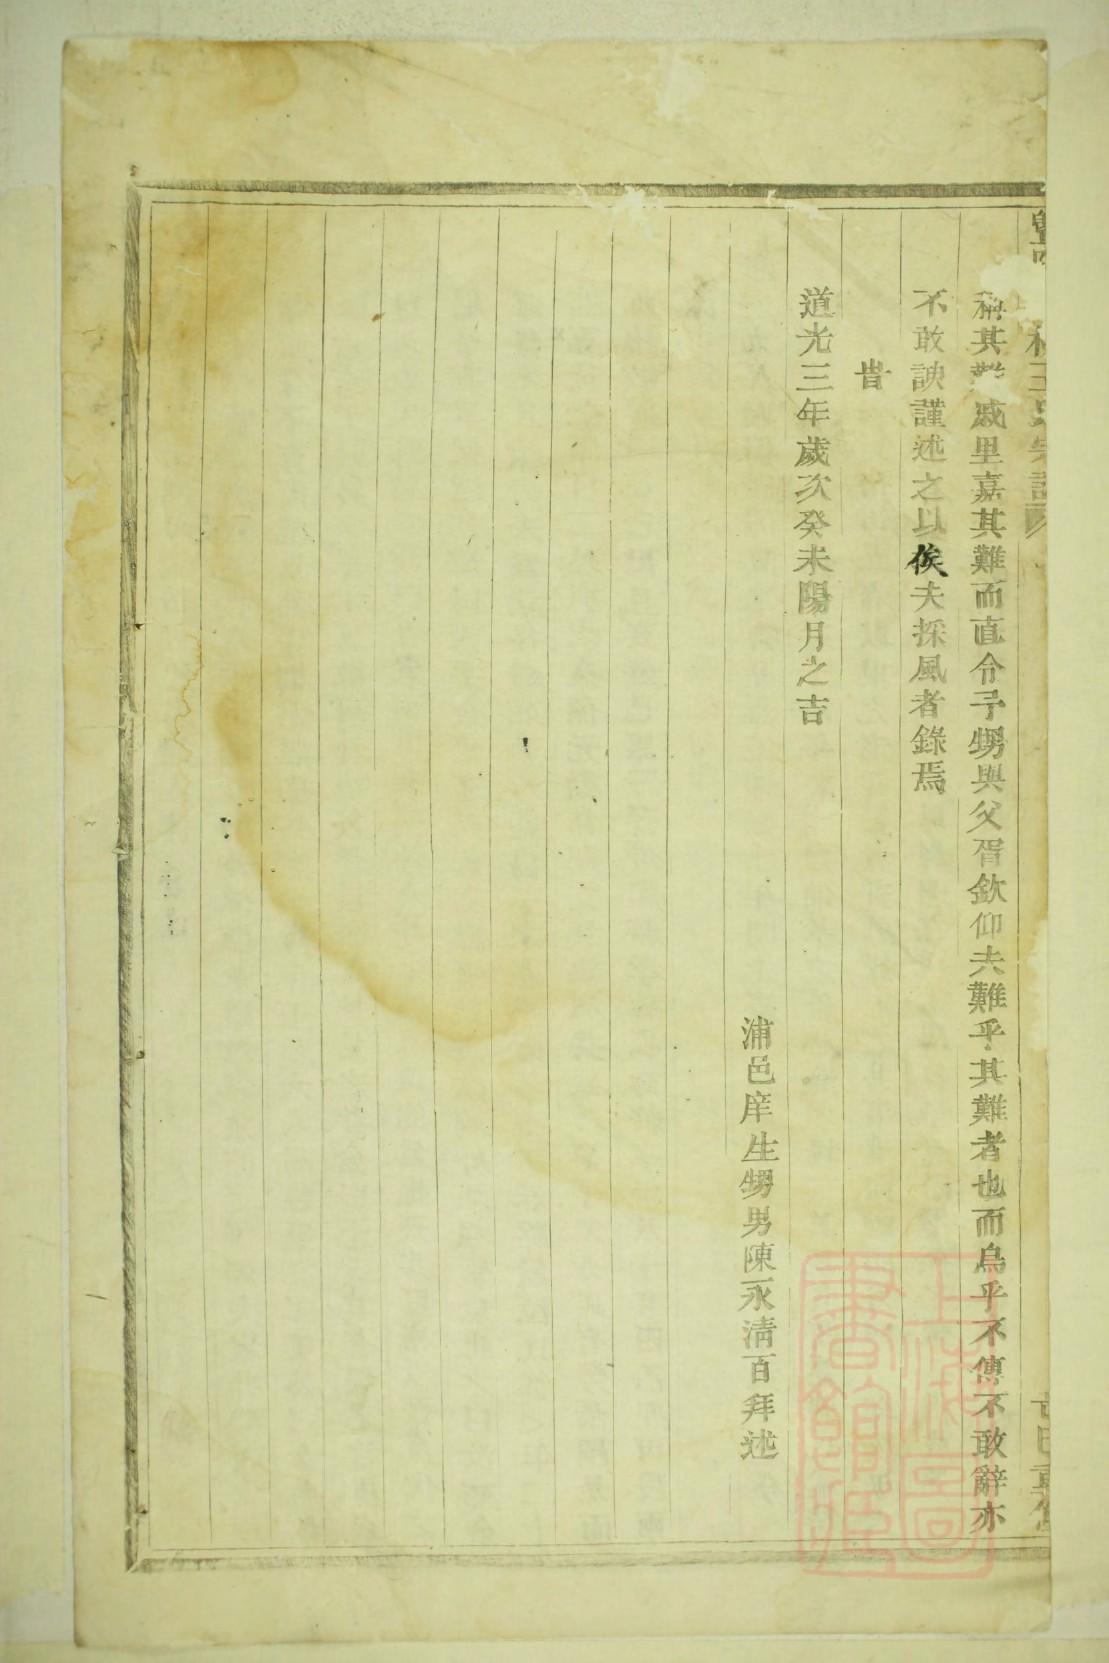 稱其難戚里嘉其難而直令予甥與父胥欽仰夫難乎其難者也而烏乎不傳不敢辭亦
不敢諛謹述之以俟夫採風者錄焉
旹
道光三年歲次癸未陽月之吉
浦邑庠生甥男陳永清百拜述
上海圖書館藏